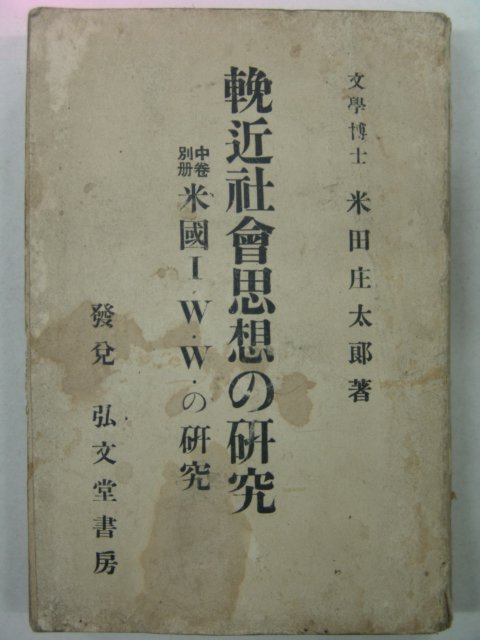 文學博士 米田庄太郎著
輓近社會思想の研究
中卷別册 米國I·W·W·の研究
發兌 弘文堂書房